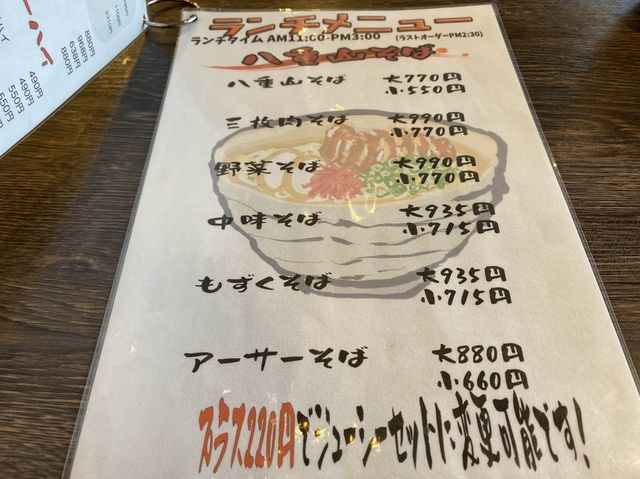 ランチメニュー
ランチタイム AM11:00-PM3:00 (ラストオーダーPM2:30)
八重山そば
八重山そば 大770円
小550円
三枚肉そば 大990円
小770円
野菜そば 大990円
小770円
中味そば 大935円
小715円
もずくそば 大935円
小715円
アーサーそば 大880円
小660円
プラス220円でジューシーセットに変更可能です!
880円
968円
638円
880円
490円
490円
550円
550円